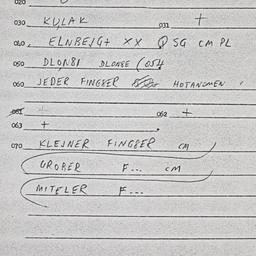 020
030 KULAK 031 +
040. ELNBEJGT XX SG CM PL
050 DLONSE
060 JEDER FINGEER HOTANOMEN
061 + 062 +
063 +
070 KLEJNER FINGEER CM
GROßER F... CM
MITELER F...